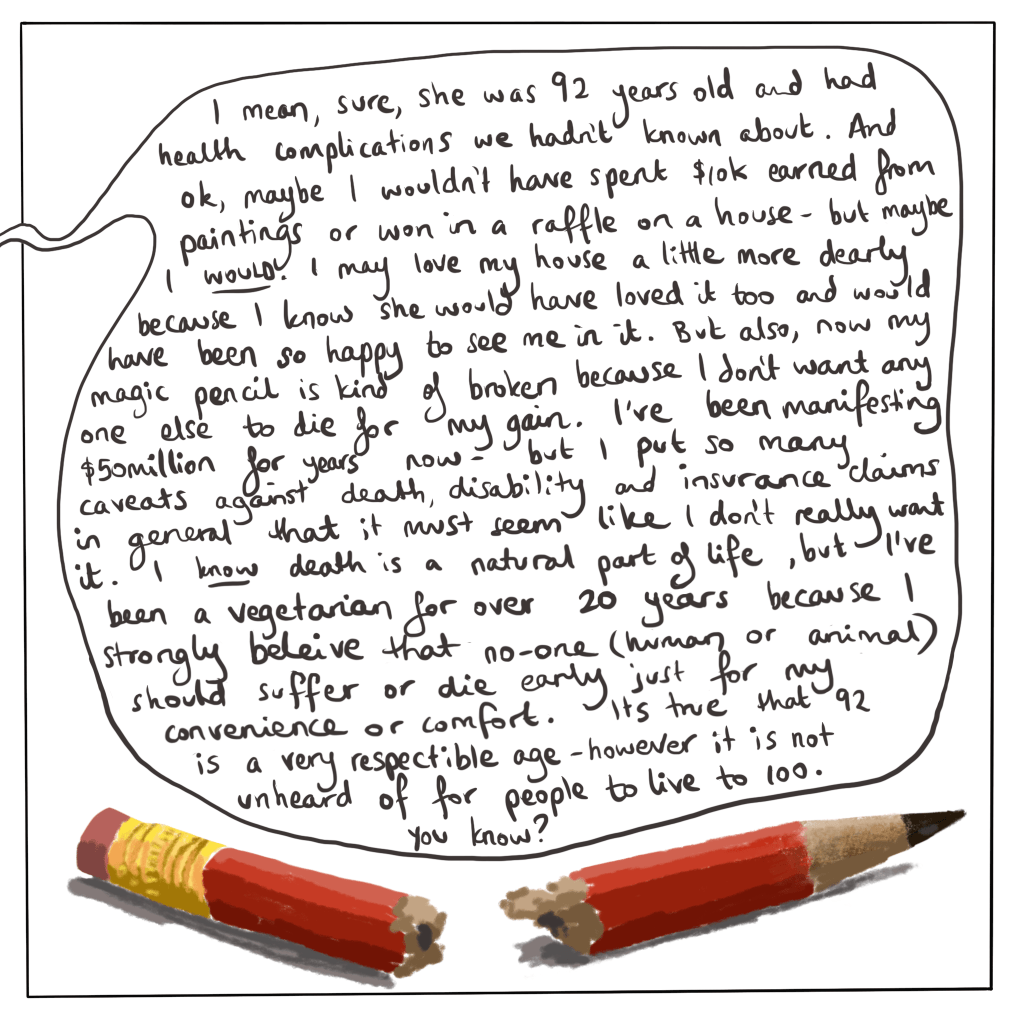 I mean, sure, she was 92 years old and had
health complications we hadn't known about. And
ok, maybe I wouldn't have spent $10k earned from
paintings or won in a raffle on a house - but maybe
I would! I may love my house a little more dearly
because I know she would have loved it too and would
have been so happy to see me in it. But also, now my
magic pencil is kind of broken because I don't want any
one else to die for my gain. I've been manifesting
$50million for years now - but I put so many
caveats against death, disability and insurance claims
in general that it must seem like I don't really want
it. I know death is a natural part of life, but I've
been a vegetarian for over 20 years because I
strongly beleive that no-one (human or animal)
should suffer or die early just for my
convenience or comfort. Its true that 92
is a very respectible age - however it is not
unheard of for people to live to 100.
you know?